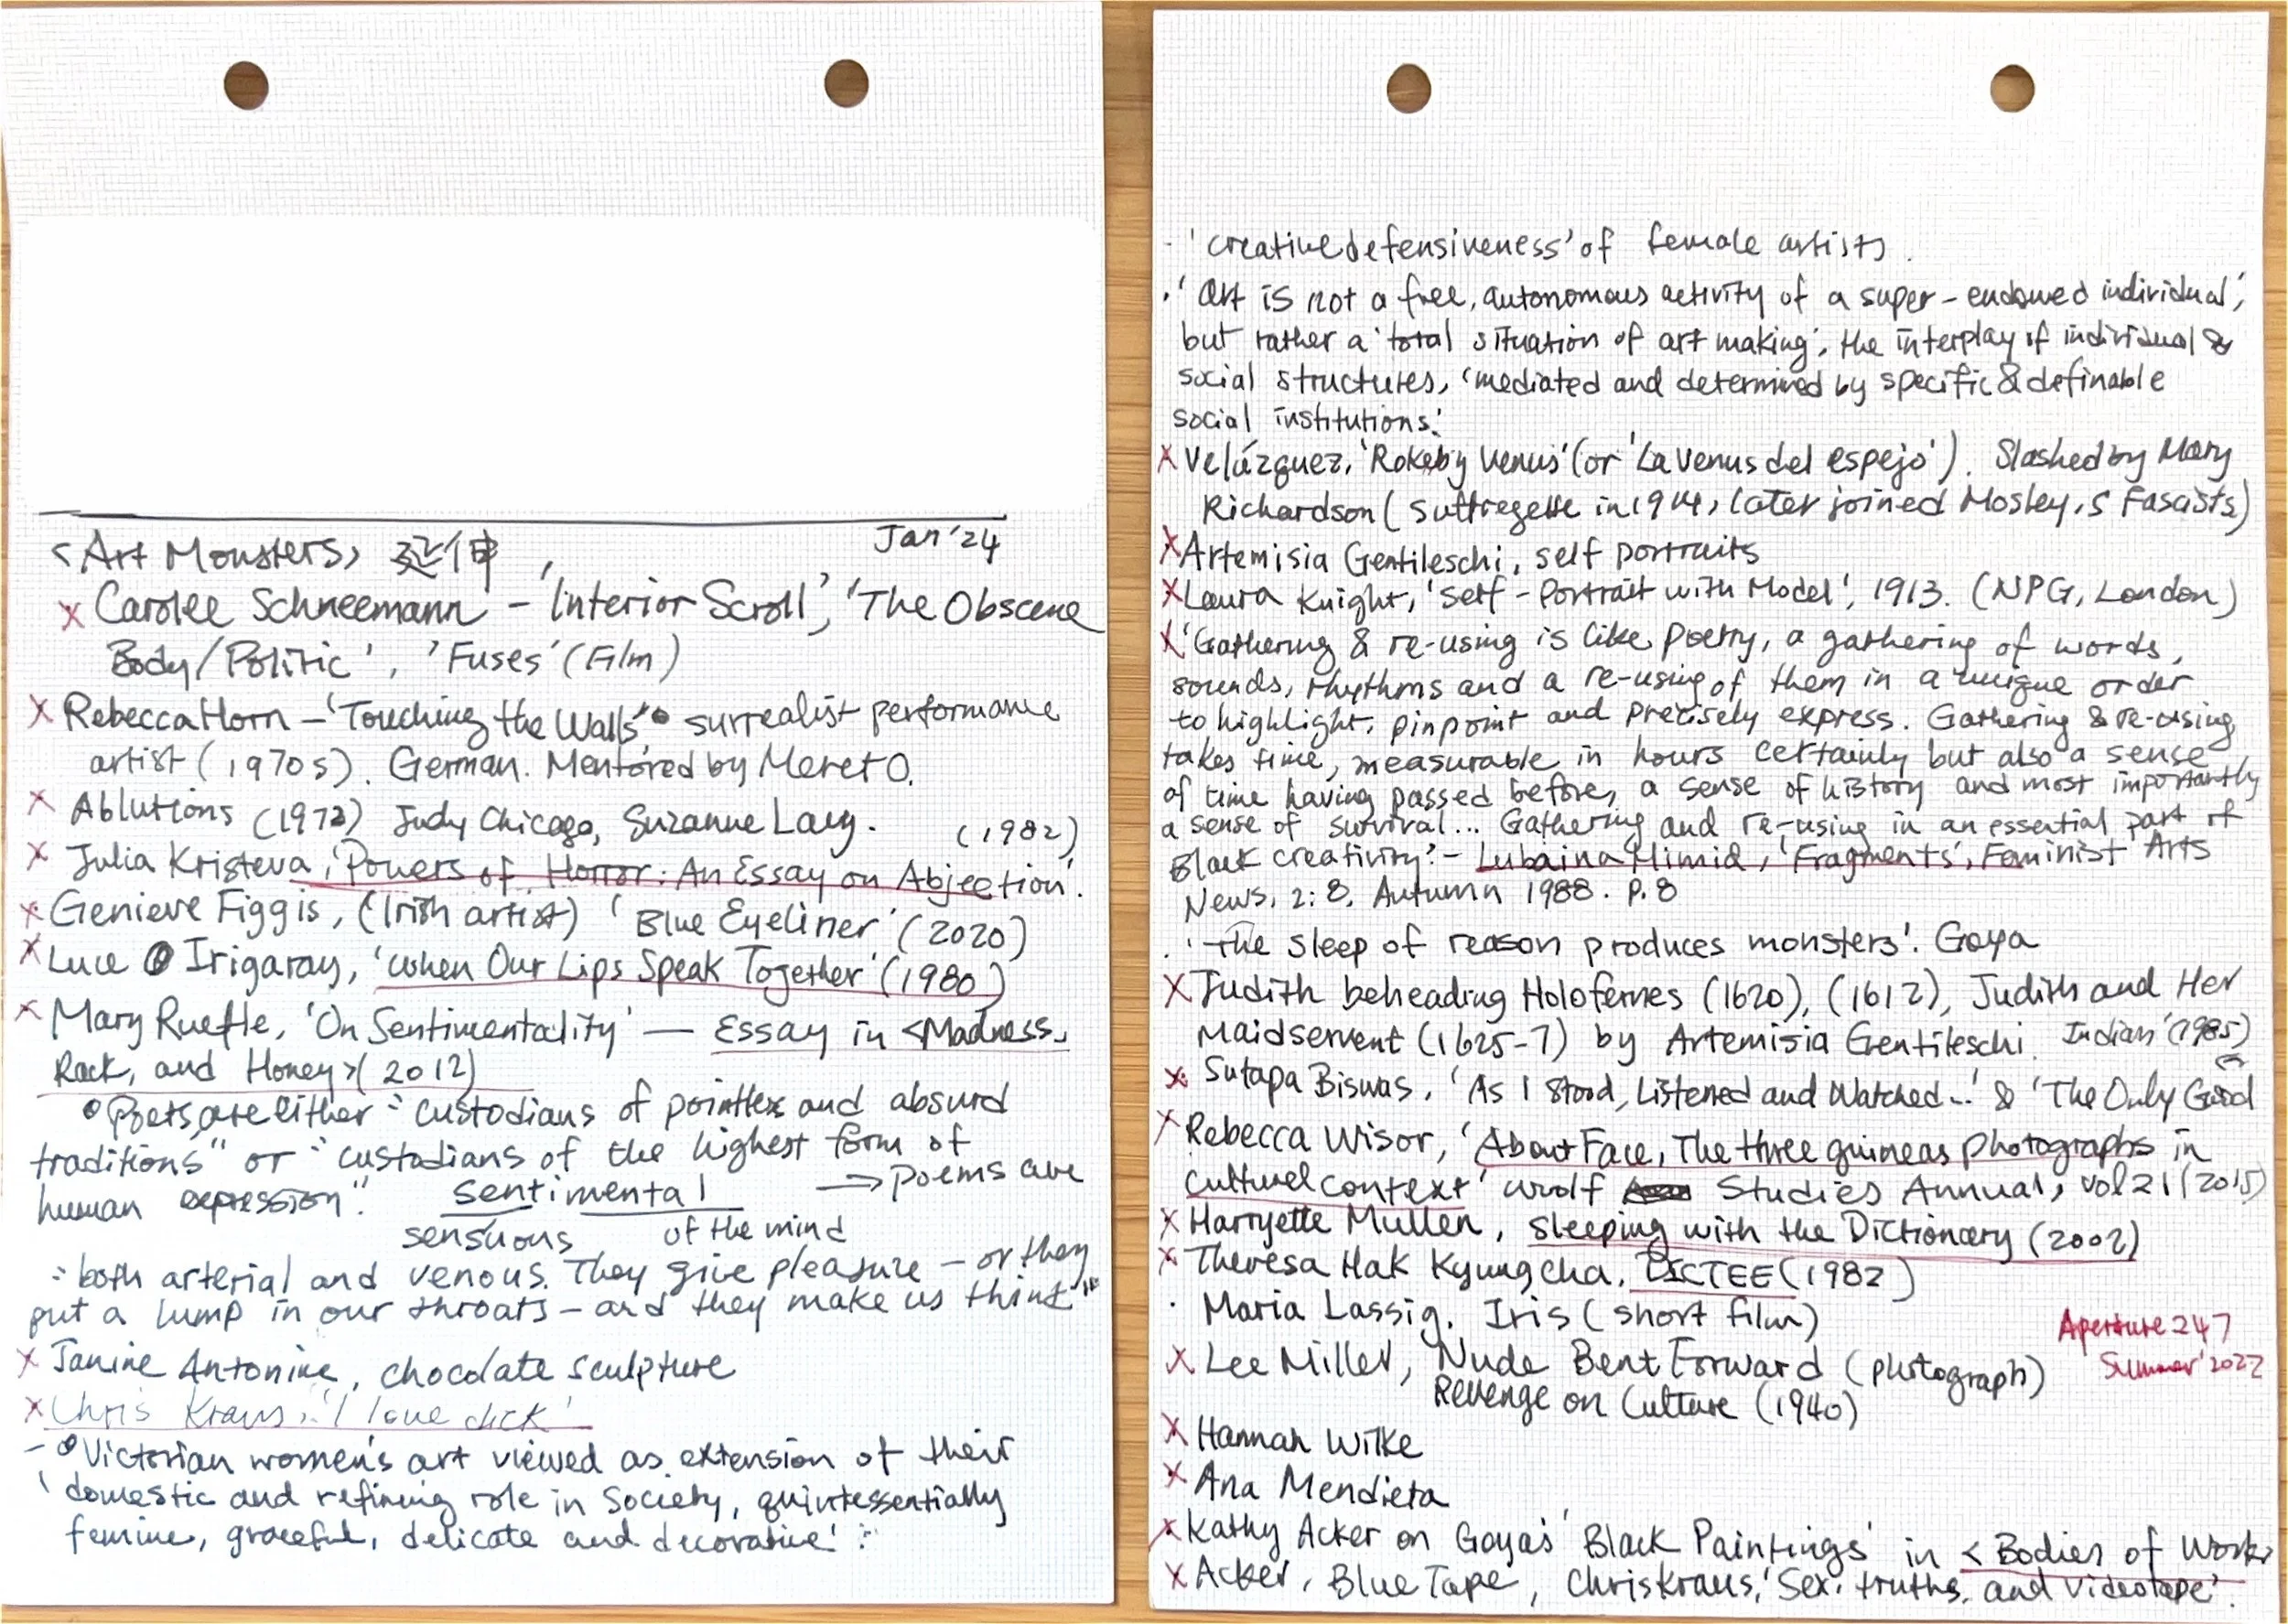 Jan '24
<Art Monsters> 延伸
x Carolee Schneemann - 'Interior Scroll', 'The Obscene
Body/Politic', 'Fuses' (Film)
x Rebecca Horn - 'Touching the Walls' surrealist performance
artist (1970s). German. Mentored by Meret O.
x Ablutions (1972) Judy Chicago, Suzanne Lacy.
(1982)
x Julia Kristeva, 'Powers of Horror: An Essay on Abjection'.
x Genieve Figgis, (Irish artist) 'Blue Eyeliner' (2020)
x Luce Irigaray, 'When Our Lips Speak Together' (1980)
x Mary Ruefle, 'On Sentimentality' — Essay in <Madness,
Rack, and Honey> (2012)
Poets are either "custodians of pointless and absurd
traditions" or "custodians of the highest form of
human expression".
sentimental → poems are
sensuous of the mind
"both arterial and venous. They give pleasure - or they
put a lump in our throats - and they make us think"
x Janine Antonine, chocolate sculpture
x Chris Kraus, 'I love dick'
- Victorian women's art viewed as extension of their
'domestic and refining role in society, quintessentially
femine, graceful, delicate and decorative'.
- 'creative defensiveness' of female artists.
. 'Art is not a free, autonomous activity of a super-endowed individual',
but rather a 'total situation of art making', the interplay of individual &
social structures, 'mediated and determined by specific & definable
social institutions.'
x Velázquez, 'Rokeby Venus' (or 'La Venus del espejo'). Slashed by Mary
Richardson (suffregette in 1914, later joined Mosley's Fascists)
x Artemisia Gentileschi, self portraits
x Laura Knight, 'Self-Portrait with Model', 1913. (NPG, London)
x 'Gathering & re-using is like poetry, a gathering of words,
sounds, rhythms and a re-using of them in a unique order
to highlight, pinpoint and precisely express. Gathering & re-using
takes time, measurable in hours certainly but also a sense
of time having passed before, a sense of history and most importantly
a sense of survival... Gathering and re-using in an essential part of
Black creativity.' - Lubaina Himid, 'Fragments', Feminist Arts
News, 2:8, Autumn 1988. p.8
. 'The sleep of reason produces monsters'. Goya
x Judith beheading Holofernes (1620), (1612), Judith and Her
Maidservent (1625-7) by Artemisia Gentileschi.
Indian' (1985)
x Sutapa Biswas, 'As I Stood, Listened and Watched...' & 'The Only Good
x Rebecca Wisor, 'About Face, The three guineas photographs in
cultural context' Woolf Studies Annual, vol 21 (2015)
x Harryette Mullen, Sleeping with the Dictionary (2002)
x Theresa Hak Kyung cha, DICTEE (1982)
. Maria Lassig. Iris (short film)
Aperture 247
Summer '2022
x Lee Miller, Nude Bent Forward (photograph)
Revenge on Culture (1940)
x Hannah Wilke
x Ana Mendieta
x Kathy Acker on Goya's 'Black Paintings' in <Bodies of Work>
x Acker, Blue Tape, Chris Kraus, 'Sex, truths, and videotape'.